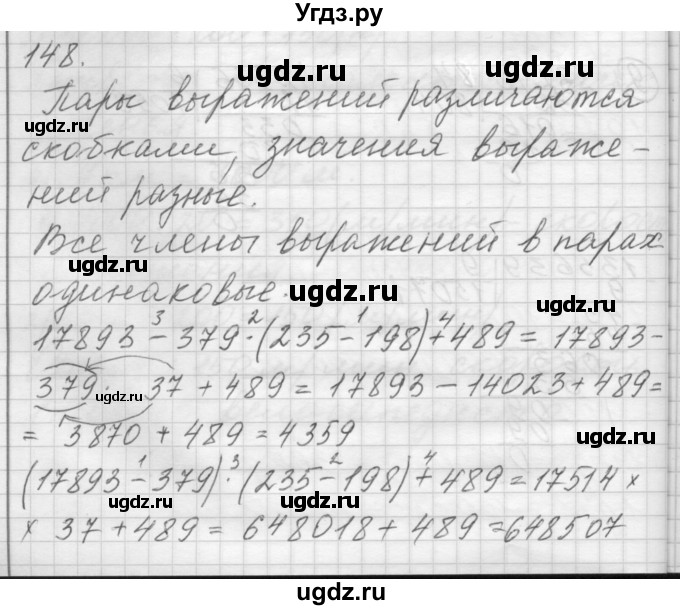 Угдз.ру
148.
ugdz.ru
ugdz.ru
Пары выражений различаются
ugdz.ru
скобками, значения выраже-
ugdz.ru
ний разные.
Все члены выражений в парах
ugdz.ru
одинаковые.
ugdz.ru
17893 - 379 · (235 - 198) + 489 = 17893 -
3 2 1 4
379 · 37 + 489 = 17893 - 14023 + 489 =
ugdz.ru
= 3870 + 489 = 4359
ugdz.ru
(17893 - 379) · (235 - 198) + 489 = 17514 ×
1 3 2 4
ugdz.ru
ugdz.ru
× 37 + 489 = 648018 + 489 = 648507
ugdz.ru